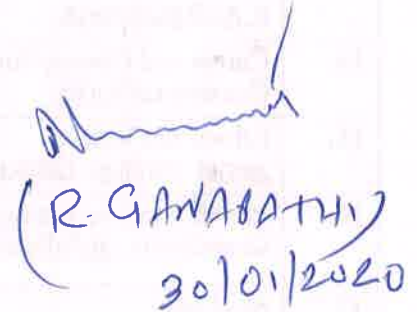 (R. GANABATHI)
30/01/2020